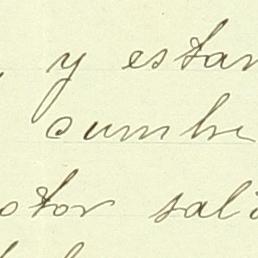 y estan
cumbr
otor sali